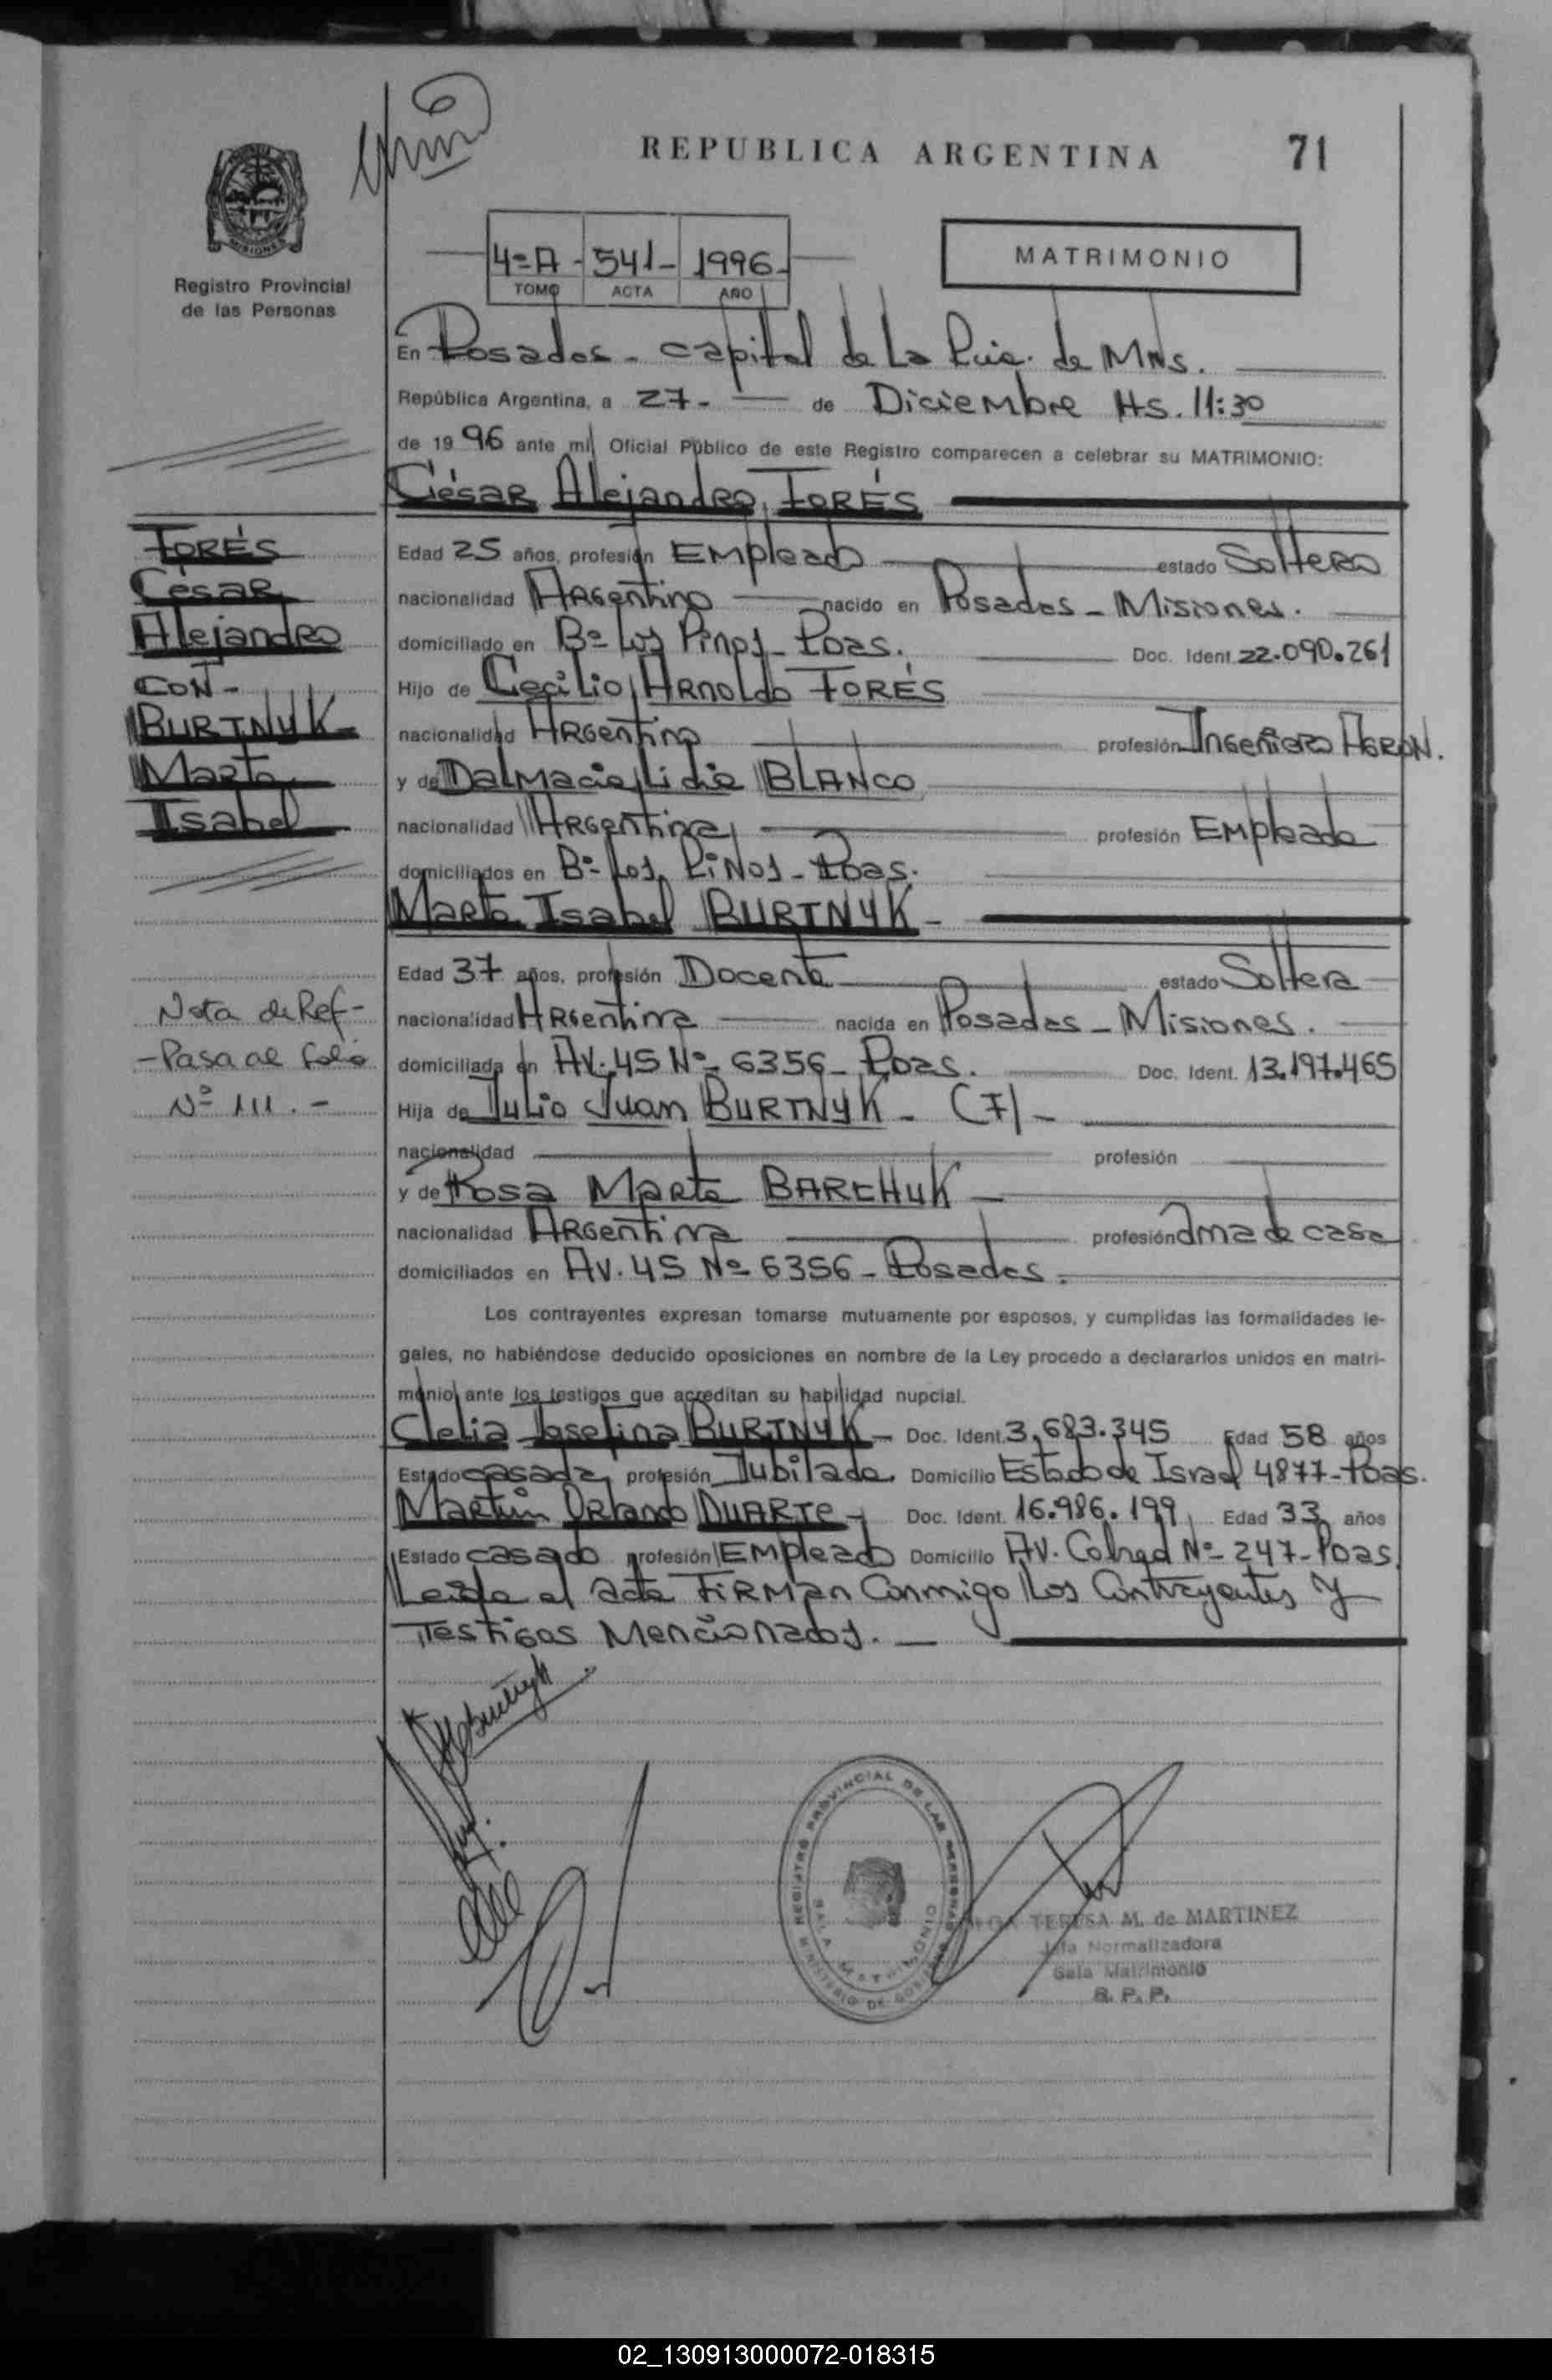 REPUBLICA ARGENTINA
71
MISIONES
Registro Provincial
de las Personas
4º A - 541 - 1996 -
TOMO ACTA AÑO
MATRIMONIO
En Posadas - capital de La Pcia. de MNS.
República Argentina, a 27 - de Diciembre Hs. 11:30
de 1996 ante mi Oficial Público de este Registro comparecen a celebrar su MATRIMONIO:
César Alejandro FORÉS
FORÉS
César
Alejandro
CON -
BURTNYK
Marta
Isabel
Edad 25 años, profesión Empleado estado Soltero
nacionalidad Argentino nacido en Posadas - Misiones.
domiciliado en Bº Los Pinos - Pdas. Doc. Ident. 22.090.261
Hijo de Cecilio Arnoldo FORÉS
nacionalidad Argentino profesión Ingeniero Agron.
y de Dalmacia Lidia BLANCO
nacionalidad Argentina profesión Empleada
domiciliados en Bº Los Pinos - Pdas.
Marta Isabel BURTNYK -
Edad 37 años, profesión Docente estado Soltera
nacionalidad Argentina nacida en Posadas - Misiones.
domiciliada en Av. 45 Nº 6356 - Pdas. Doc. Ident. 13.197.465
Hija de Julio Juan BURTNYK - (F) -
nacionalidad profesión
y de Rosa Marta BARCHUK -
nacionalidad Argentina profesión Ama de casa
domiciliados en Av. 45 Nº 6356 - Posadas.
Nota de Ref -
- Pasa al folio
Nº 111. -
Los contrayentes expresan tomarse mutuamente por esposos, y cumplidas las formalidades le-
gales, no habiéndose deducido oposiciones en nombre de la Ley procedo a declararlos unidos en matri-
monio ante los testigos que acreditan su habilidad nupcial.
Clelia Josefina BURTNYK - Doc. Ident. 3.683.345 Edad 58 años
Estado casada profesión Jubilada Domicilio Estado de Israel 4877 - Pdas.
Martin Orlando DUARTE - Doc. Ident. 16.986.199 Edad 33 años
Estado casado profesión Empleado Domicilio Av. Nº 247 - Pdas.
Leida el acta Firman Conmigo Los Contrayentes y
Testigos Mencionados. -
REGISTRO PROVINCIAL DE LAS PERSONAS
SALA MATRIMONIO
MINISTERIO DE GOBIERNO
TERESA M. de MARTINEZ
Jefa Normalizadora
Sala Matrimonio
R. P. P.
02_130913000072-018315